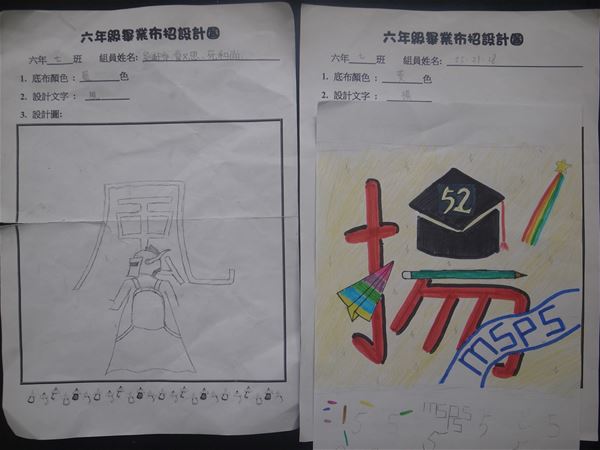 六年級畢業布招設計圖
六年 七 班 組員姓名:
1. 底布顏色: 藍 色
2. 設計文字: 凰
3. 設計圖:
凰
六年級畢業布招設計圖
六年 七 班 組員姓名: 25.27.28
1. 底布顏色: 黃 色
2. 設計文字: 揚
52
揚
MSPS
MSPS
5
5
5
5